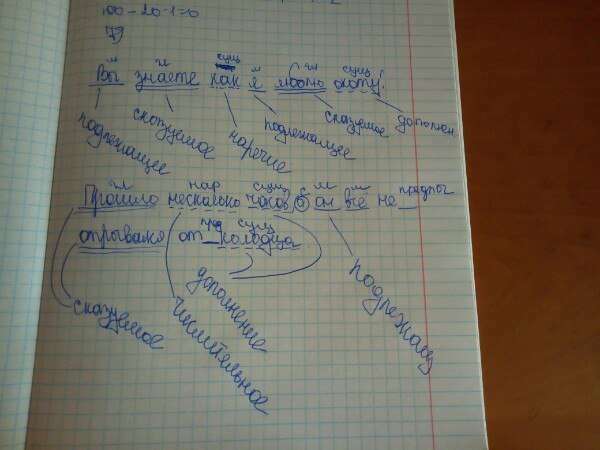 100 - 20 · 1 = 0
7)
м гл сущ м гл сущ
Вы знаете как я люблю охоту!
подлежащее сказуемое наречие подлежащее сказуемое дополнен
гл нар сущ с м м предлог
Прошло несколько часов, а он всё не
пред сущ
отрывался от колодца
сказуемое числительное дополнение подлежащ